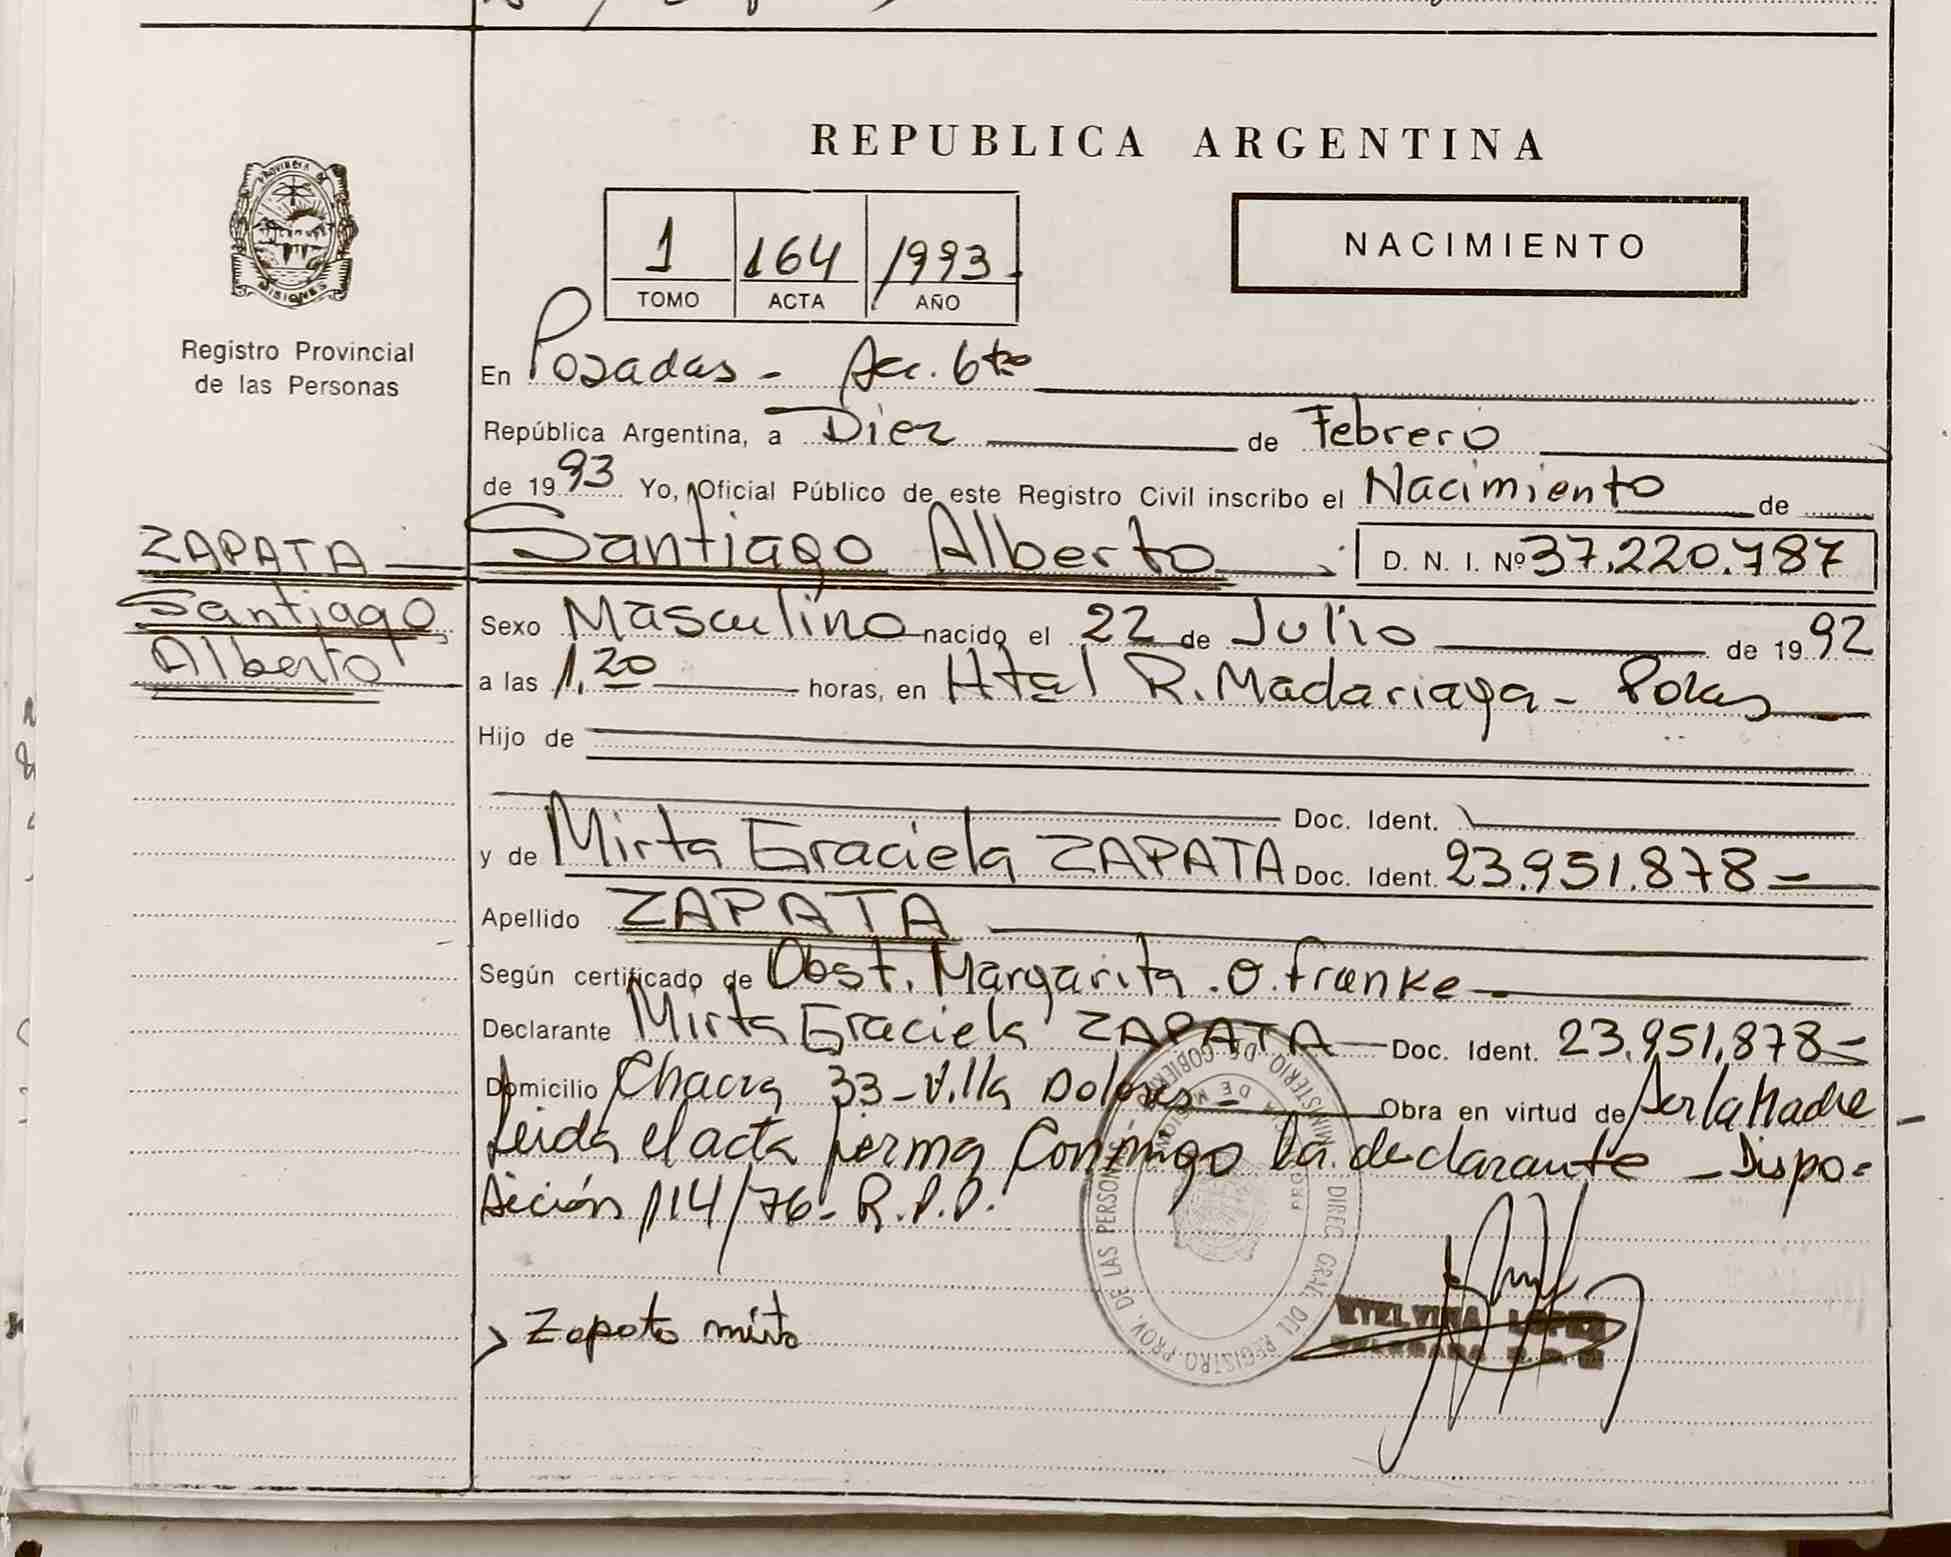 REPUBLICA ARGENTINA
PROVINCIA DE
MISIONES
Registro Provincial
de las Personas
1 164 1993
TOMO ACTA AÑO
NACIMIENTO
En Posadas - Sec. 6ta
República Argentina, a Diez de Febrero
de 1993 Yo, Oficial Público de este Registro Civil inscribo el Nacimiento de
ZAPATA
Santiago
Alberto
Santiago Alberto D. N. I. Nº 37.220.787
Sexo Masculino nacido el 22 de Julio de 1992
a las 1,20 horas, en Htal R. Madariaga - Pdas
Hijo de
Doc. Ident.
y de Mirta Graciela ZAPATA Doc. Ident. 23.951.878
Apellido ZAPATA
Según certificado de Obst. Margarita O. Franke
Declarante Mirta Graciela ZAPATA Doc. Ident. 23.951.878
Domicilio Chacra 33 - Villa Dolores - Obra en virtud de ser la Madre
Leida el acta firma conmigo la declarante - Dispo=
sición 114/76 - R.P.P.
Zapata mirta
MINISTERIO DE GOBIERNO
DIREC. GRAL. DEL REGISTRO PROV. DE LAS PERSONAS
ETELVINA LOPEZ